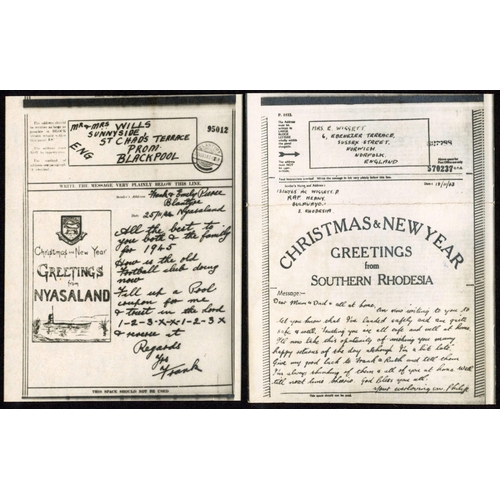 MR & MRS WILLS
SUNNYSIDE
ST CHAD'S TERRACE
PROM
BLACKPOOL
ENG
95012
WRITE THE MESSAGE VERY PLAINLY BELOW THIS LINE.
Blantyre
Nyasaland
Christmas and New Year
GREETINGS
from
NYASALAND
All the best to
you both & the family
for 1945
How is the old
Football club doing
now
Fill up a Pool
coupon for me
& trust in the Lord
1-2-3-X-X-1-2-3X
& reverse it
Regards
Yrs
Frank
THIS SPACE SHOULD NOT BE USED
MRS. E. WIGGETT.
6, EBENEZER TERRACE,
SUSSEX STREET,
NORWICH
NORFOLK
ENGLAND
570237
WIGGETT. P
RAF HEANY
BULAWAYO.
S. RHODESIA
CHRISTMAS & NEW YEAR
GREETINGS
from
SOUTHERN RHODESIA
Message:—
Dear Mum & Dad & all at home,
Am now writing to you to
let you know that I've landed safely and am quite
safe & well, trusting you are all safe and well at home.
It's now take this opportunity of wishing you many
happy returns of the day although I'm a bit late.
Give my good luck to Frank & Ruth and tell them
I'm always thinking of them & all of you at home. Well
till next time cheerio. God Bless you all.
Your everloving son Philip